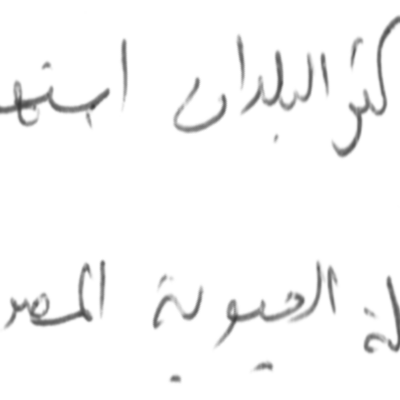 كثر البلدان استه
لة الحيوية المصر